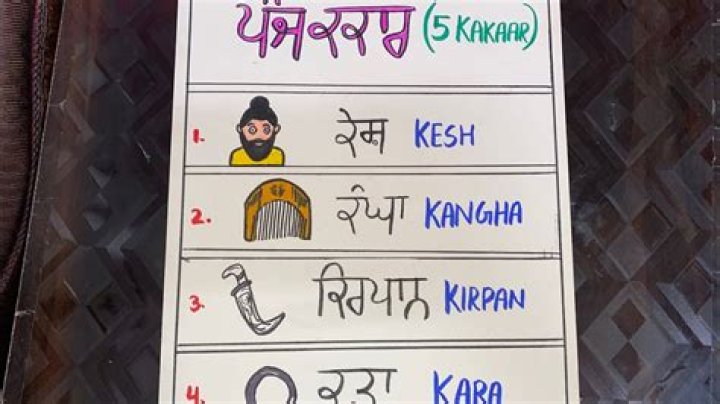 ਪੰਜ ਕਕਾਰ (5 KAKAAR)
1. ਕੇਸ਼ KESH
2. ਕੰਘਾ KANGHA
3. ਕਿਰਪਾਨ KIRPAN
4. ਕੜਾ KARA